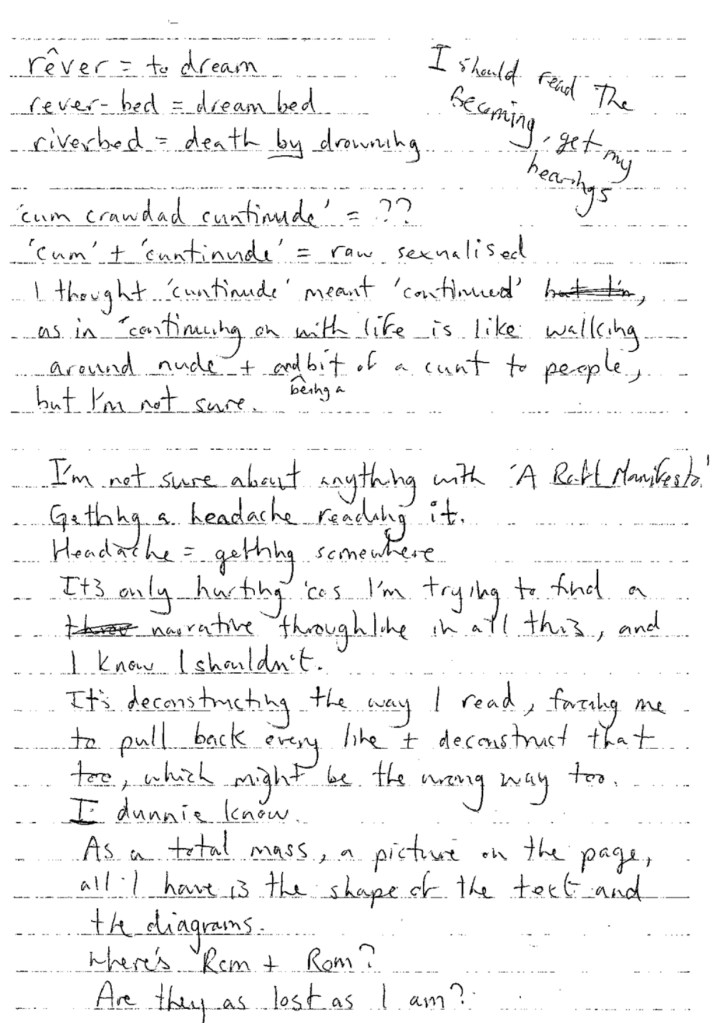 rêver = to dream
rever-bed = dream bed
riverbed = death by drowning
I should read The
Becoming, get my
bearings
'cum crawdad cuntinude' = ??
'cum' + 'cuntinude' = raw sexualised
I thought 'cuntinude' meant 'continued' but I'm,
as in 'continuing on with life is like walking
around nude + being a bit of a cunt to people,
but I'm not sure.
I'm not sure about anything with 'A Manifesto.'
Getting a headache reading it.
Headache = getting somewhere
It's only hurting 'cos I'm trying to find a
narrative throughline in all this, and
I know I shouldn't.
It's deconstructing the way I read, forcing me
to pull back every line + deconstruct that
too, which might be the wrong way too.
I dunnie know.
As a total mass, a picture on the page,
all I have is the shape of the text and
the diagrams.
Where's Rem + Rom?
Are they as lost as I am?